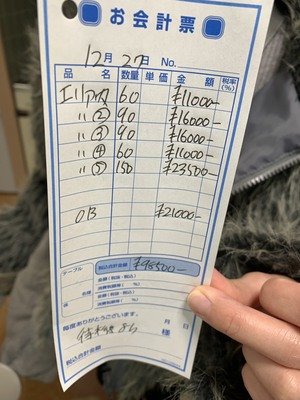 お会計票
12月27日 No.
品名 数量 単価 金額 税率(%)
エリア内 60 ¥11000-
〃② 90 ¥16000-
〃③ 90 ¥16000-
〃④ 60 ¥11000-
〃⑤ 150 ¥23500-
OB ¥21000-
テーブル 税込合計金額 ¥98500-
金額(税抜・税込)
消費税額等( %)
係 名様 金額(税抜・税込)
消費税額等( %)
毎度ありがとうございます。 月 日
様
税込合計金額